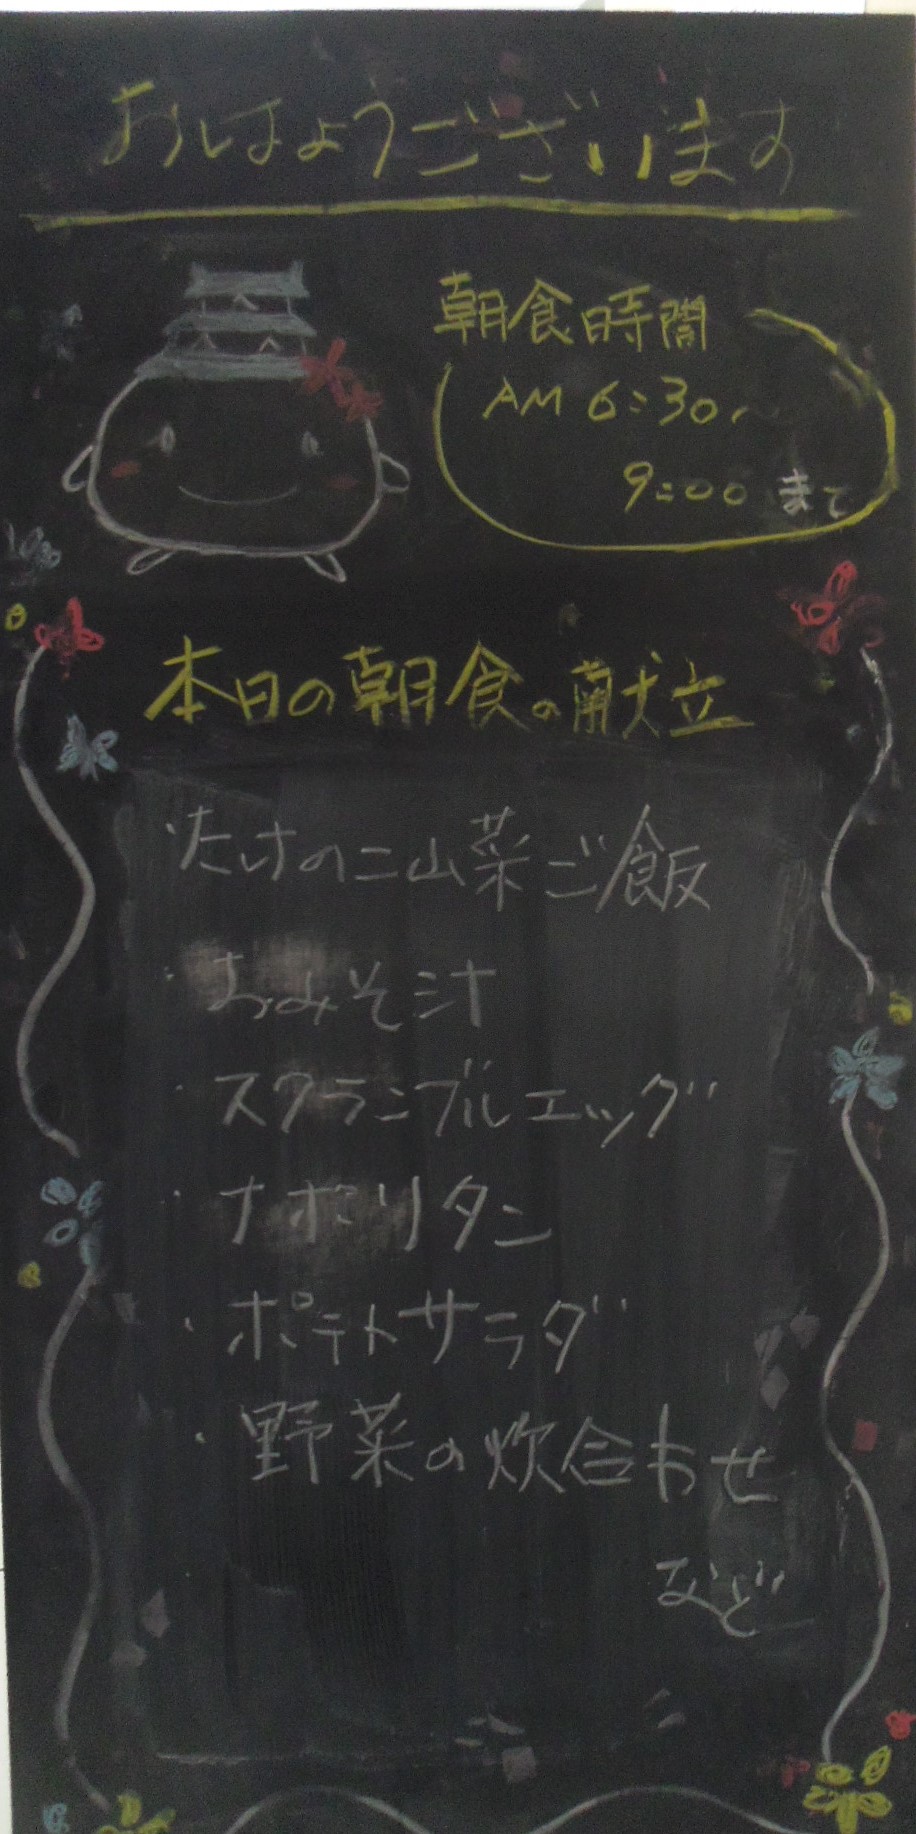 おはようございます
朝食時間
AM 6:30〜
9:00 まで
本日の朝食の献立
・たけのこ山菜ご飯
・おみそ汁
・スクランブルエッグ
・ナポリタン
・ポテトサラダ
・野菜の炊合わせ
など